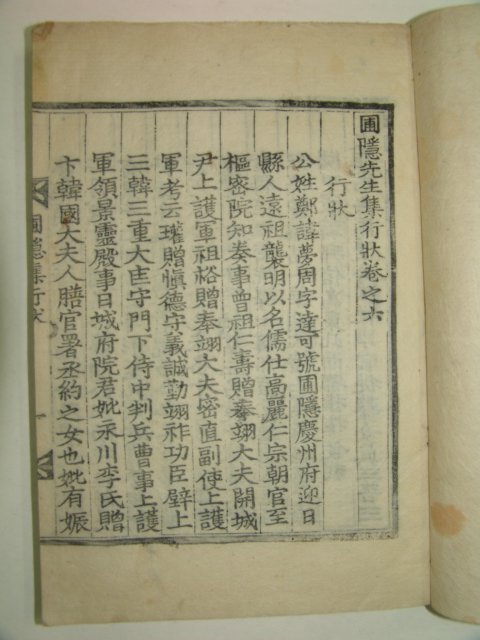 圃隱先生集行狀卷之六
行狀
公姓鄭諱夢周字達可號圃隱慶州府迎日
縣人遠祖襲明以名儒仕高麗仁宗朝官至
樞密院知奏事曾祖仁壽贈奉翊大夫開城
尹上護軍祖裕贈奉翊大夫密直副使上護
軍考云瓘贈愼德守義誠勤翊祚功臣壁上
三韓三重大匡守門下侍中判兵曹事上護
軍領景靈殿事日城府院君妣永川李氏贈
卞韓國大夫人膳官署丞約之女也妣有娠
圃隱集行狀
一